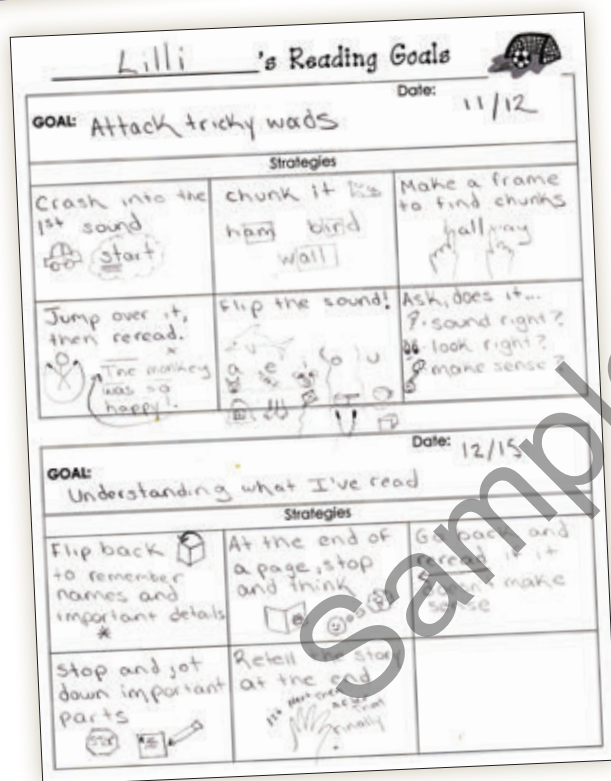 Lilli 's Reading Goals
Date: 11/12
GOAL: Attack tricky words
Strategies
Crash into the
1st sound
start
chunk it
ham bird
wall
Make a frame
to find chunks
hallway
Jump over it,
then reread.
The monkey
was so
happy!
Flip the sound!
a e i o u
Ask, does it...
? sound right?
look right?
make sense?
Date: 12/15
GOAL:
Understanding what I've read
Strategies
Flip back
to remember
names and
important details
*
At the end of
a page, stop
and think
Go back and
reread if it
doesn't make
sense
Stop and jot
down important
parts
Retell the story
at the end
1st next
finally
Sample